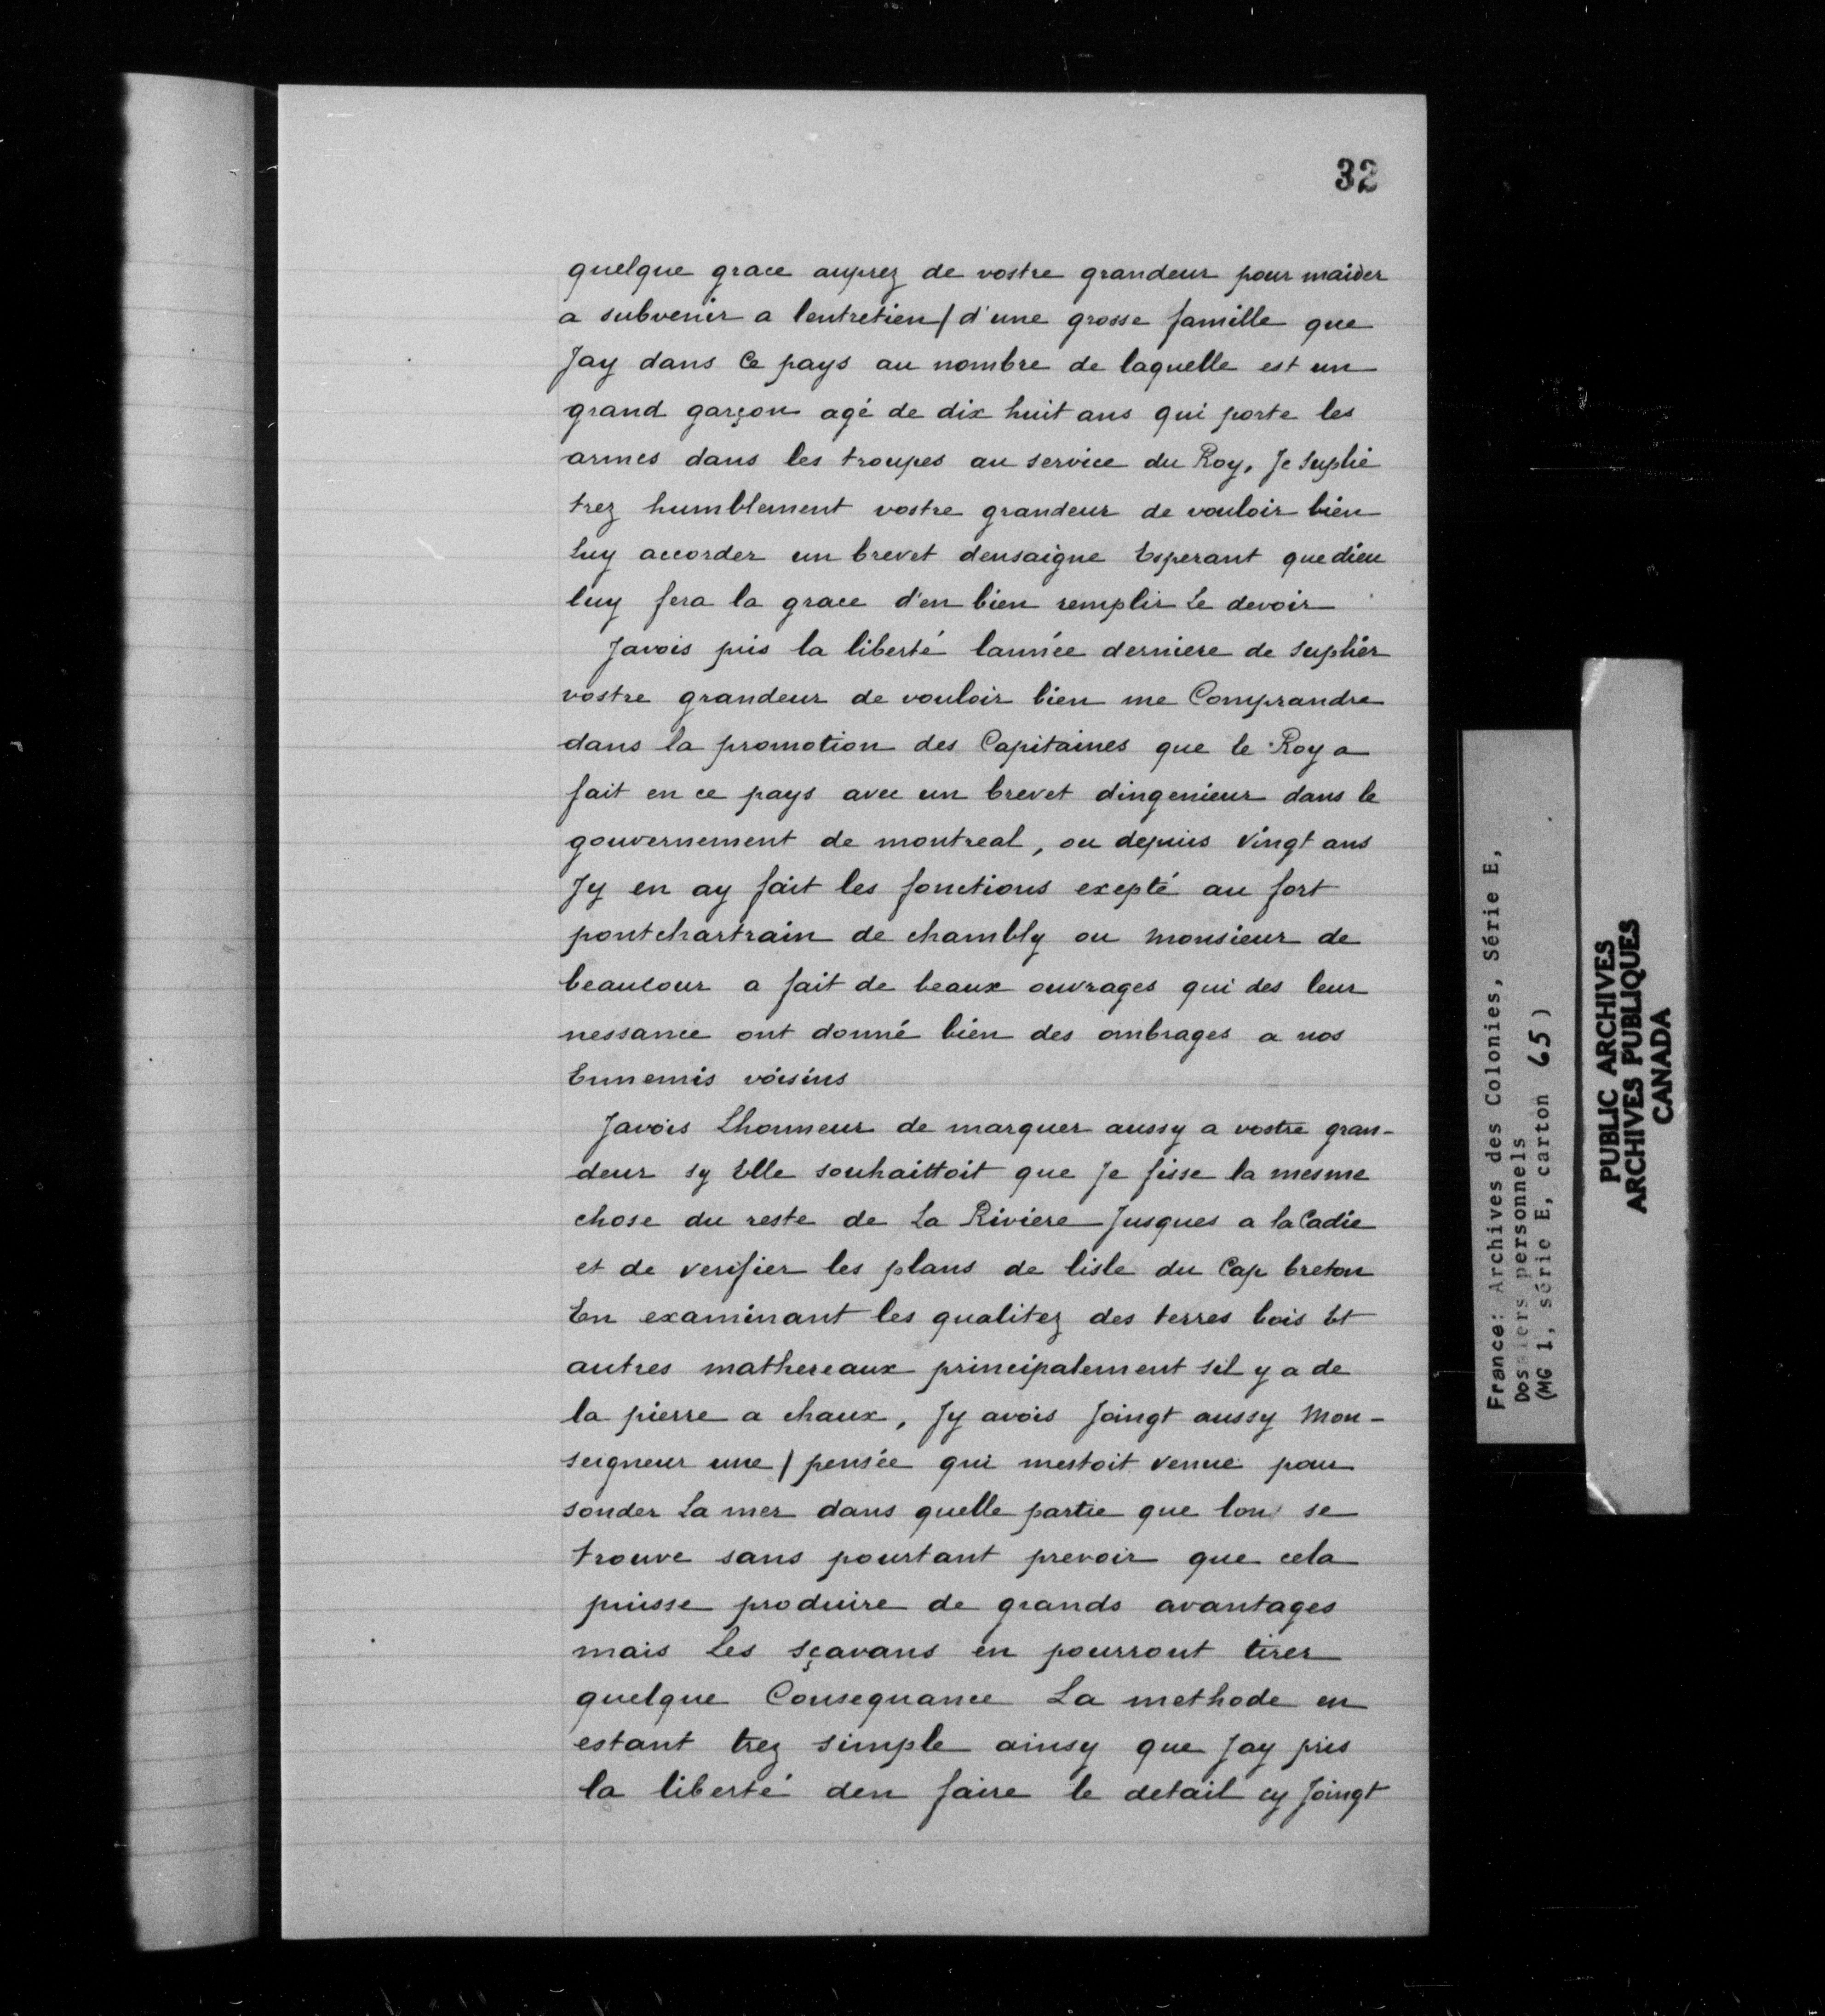 32
quelque grace auprez de vostre grandeur pour maider
a subvenir a lentretien / d'une grosse famille que
Jay dans Ce pays au nombre de laquelle est un
grand garçon agé de dix huit ans qui porte les
armes dans les troupes au service du Roy. Je suplie
trez humblement vostre grandeur de vouloir bien
Luy accorder un brevet densaigne Esperant que dieu
luy fera la grace d'en bien remplir Le devoir
Javois pris la liberté lannée derniere de suplier
vostre grandeur de vouloir bien me Comprandre
dans la promotion des Capitaines que le Roy a
fait en ce pays avec un brevet dingenieur dans le
gouvernement de montreal, ou depuis Vingt ans
Jy en ay fait les fonctions exepté au fort
pontchartrain de chambly ou Monsieur de
beaucour a fait de beaux ouvrages qui des leur
nessance ont donné bien des ombrages a nos
Ennemis voisins
Javois Lhonneur de marquer aussy a vostre gran-
deur sy Elle souhaittoit que Je fisse la mesme
chose du reste de La Riviere Jusques a laCadie
et de verifier les plans de lisle du Cap breton
En examinant les qualitez des terres bois Et
autres mathereaux principalement sil y a de
la pierre a chaux, Jy avois Joingt aussy Mon-
seigneur une / pensée qui mestoit venue pour
sonder La mer dans quelle partie que lon se
trouve sans pourtant prevoir que cela
puisse produire de grands avantages
mais Les sçavans en pourront tirer
quelque Consequance La methode en
estant trez simple ainsy que Jay pris
la liberté den faire le detail cy Joingt
France: Archives des Colonies, Série E,
Dossiers personnels
(MG 1, série E, carton 65)
PUBLIC ARCHIVES
ARCHIVES PUBLIQUES
CANADA